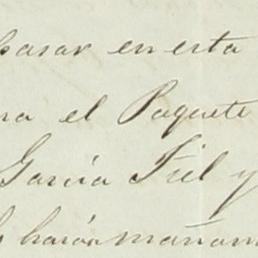 pasar en esta
el Paquete
García Fiel y
harán mañan